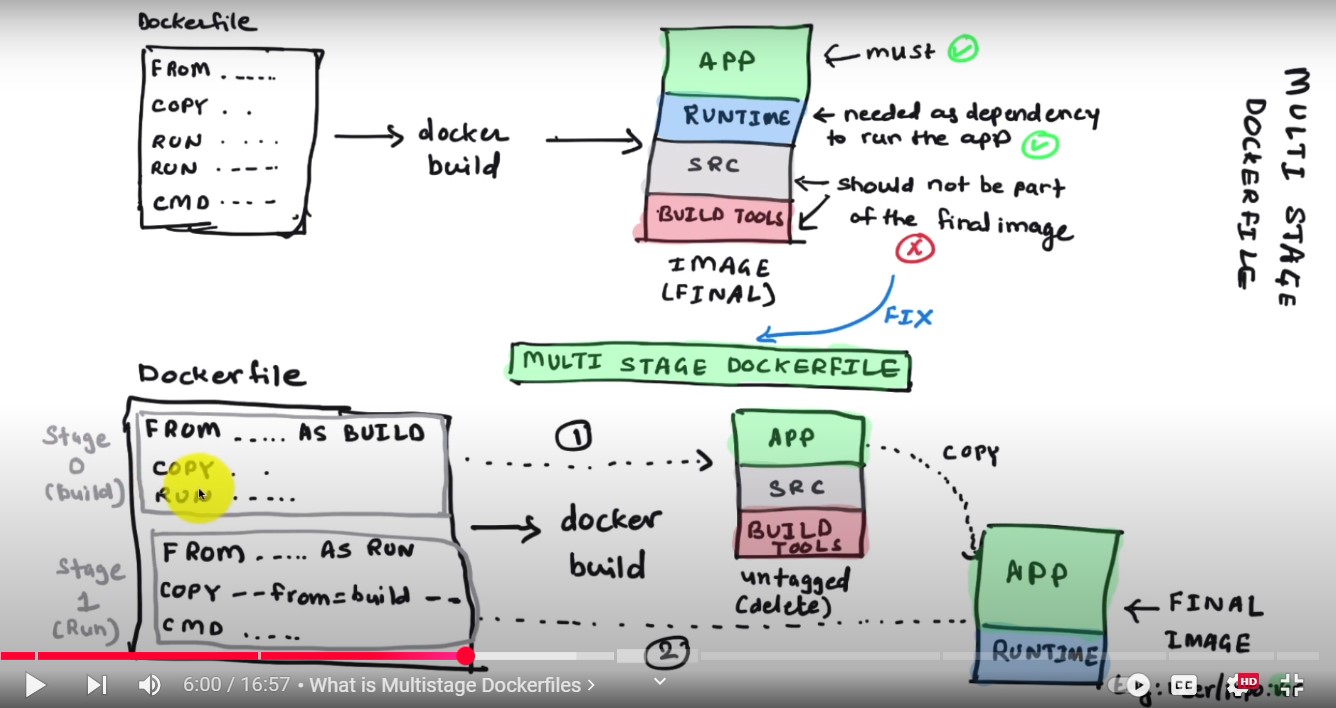 Dockerfile
FROM . -----
COPY . .
RUN . . . .
RUN . ----
CMD ----
docker
build
APP
RUNTIME
SRC
BUILD TOOLS
IMAGE
(FINAL)
must
needed as dependency
to run the app
should not be part
of the final image
MULTI STAGE
DOCKERFILE
FIX
MULTI STAGE DOCKERFILE
Dockerfile
Stage
0
(build)
FROM ..... AS BUILD
COPY . .
RUN . ....
Stage
1
(Run)
FROM ..... AS RUN
COPY --from=build --
CMD .....
1
docker
build
APP
SRC
BUILD
TOOLS
untagged
(delete)
COPY
2
APP
RUNTIME
FINAL
IMAGE
6:00 / 16:57 • What is Multistage Dockerfiles >
CC
HD